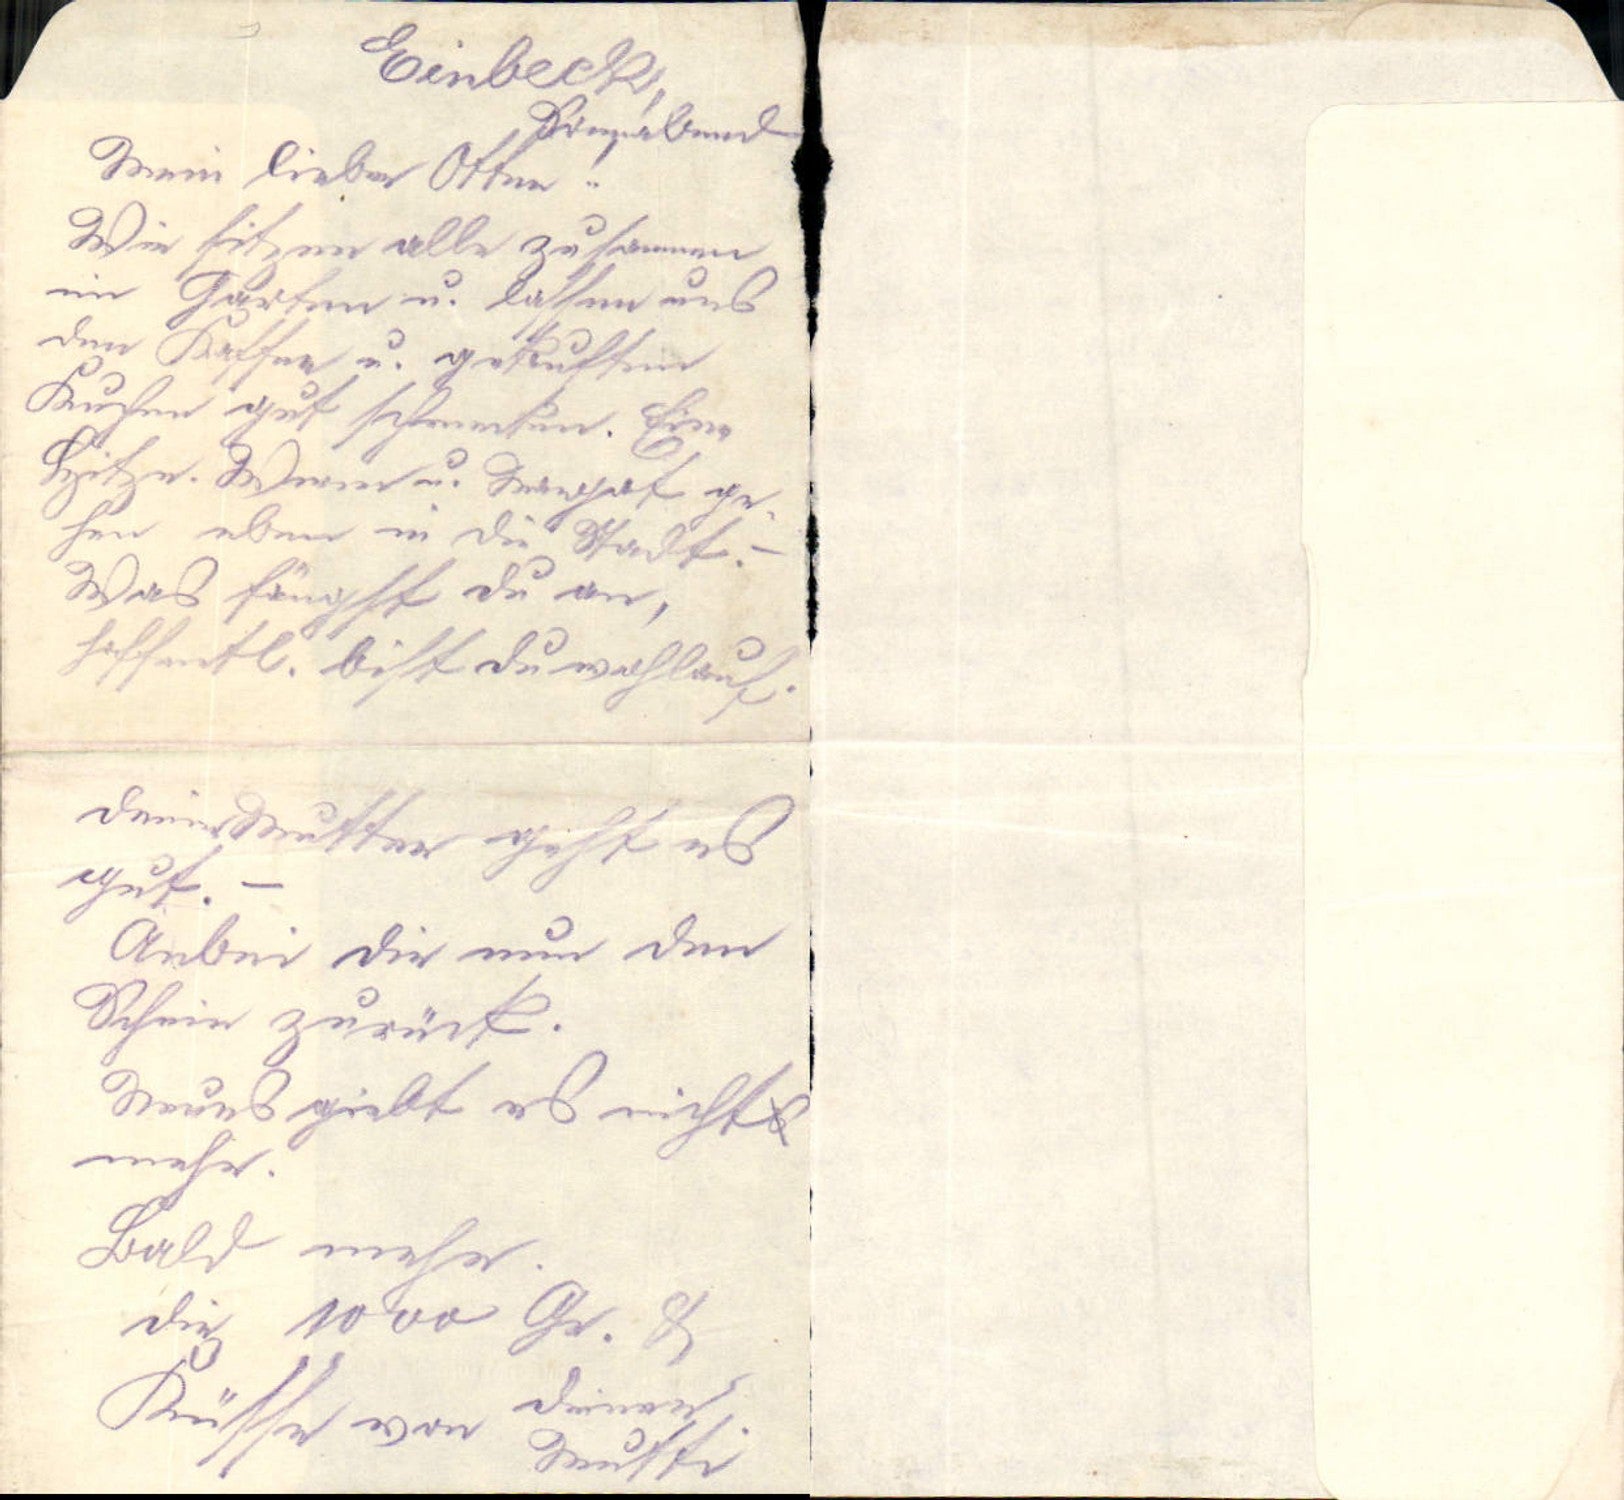 Einbeck,
Sonnabend
Mein lieber Otten!
Wir sitzen alle zusammen
im Garten u. lassen uns
den Kaffee u. gekauften
Kuchen gut schmecken. Eine
Hitze. Werner u. Margot ge-
hen eben in die Stadt. –
Was fängst du an,
hoffentl. bist du wohlauf.
Deiner Mutter geht es
gut. –
Anbei dir nun den
Schein zurück.
Neues giebt es nicht
mehr.
Bald mehr.
Dir 1000 Gr. &
Küsse von deiner
Mutti